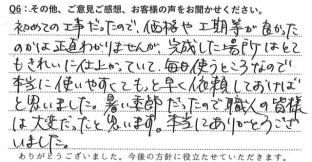 Q6：その他、ご意見ご感想、お客様の声をお聞かせください。
初めての工事だったので、価格や工期等が良かった
のかは正直わかりませんが、完成した場所はとて
もきれいに仕上がっていて、毎日使うところなので
本当に使いやすくてもっと早く依頼しておけば
と思いました。暑い季節だったので職人の皆様
は大変だったと思います。本当にありがとうござ
いました。
ありがとうございました。今後の方針に役立たせていただきます。